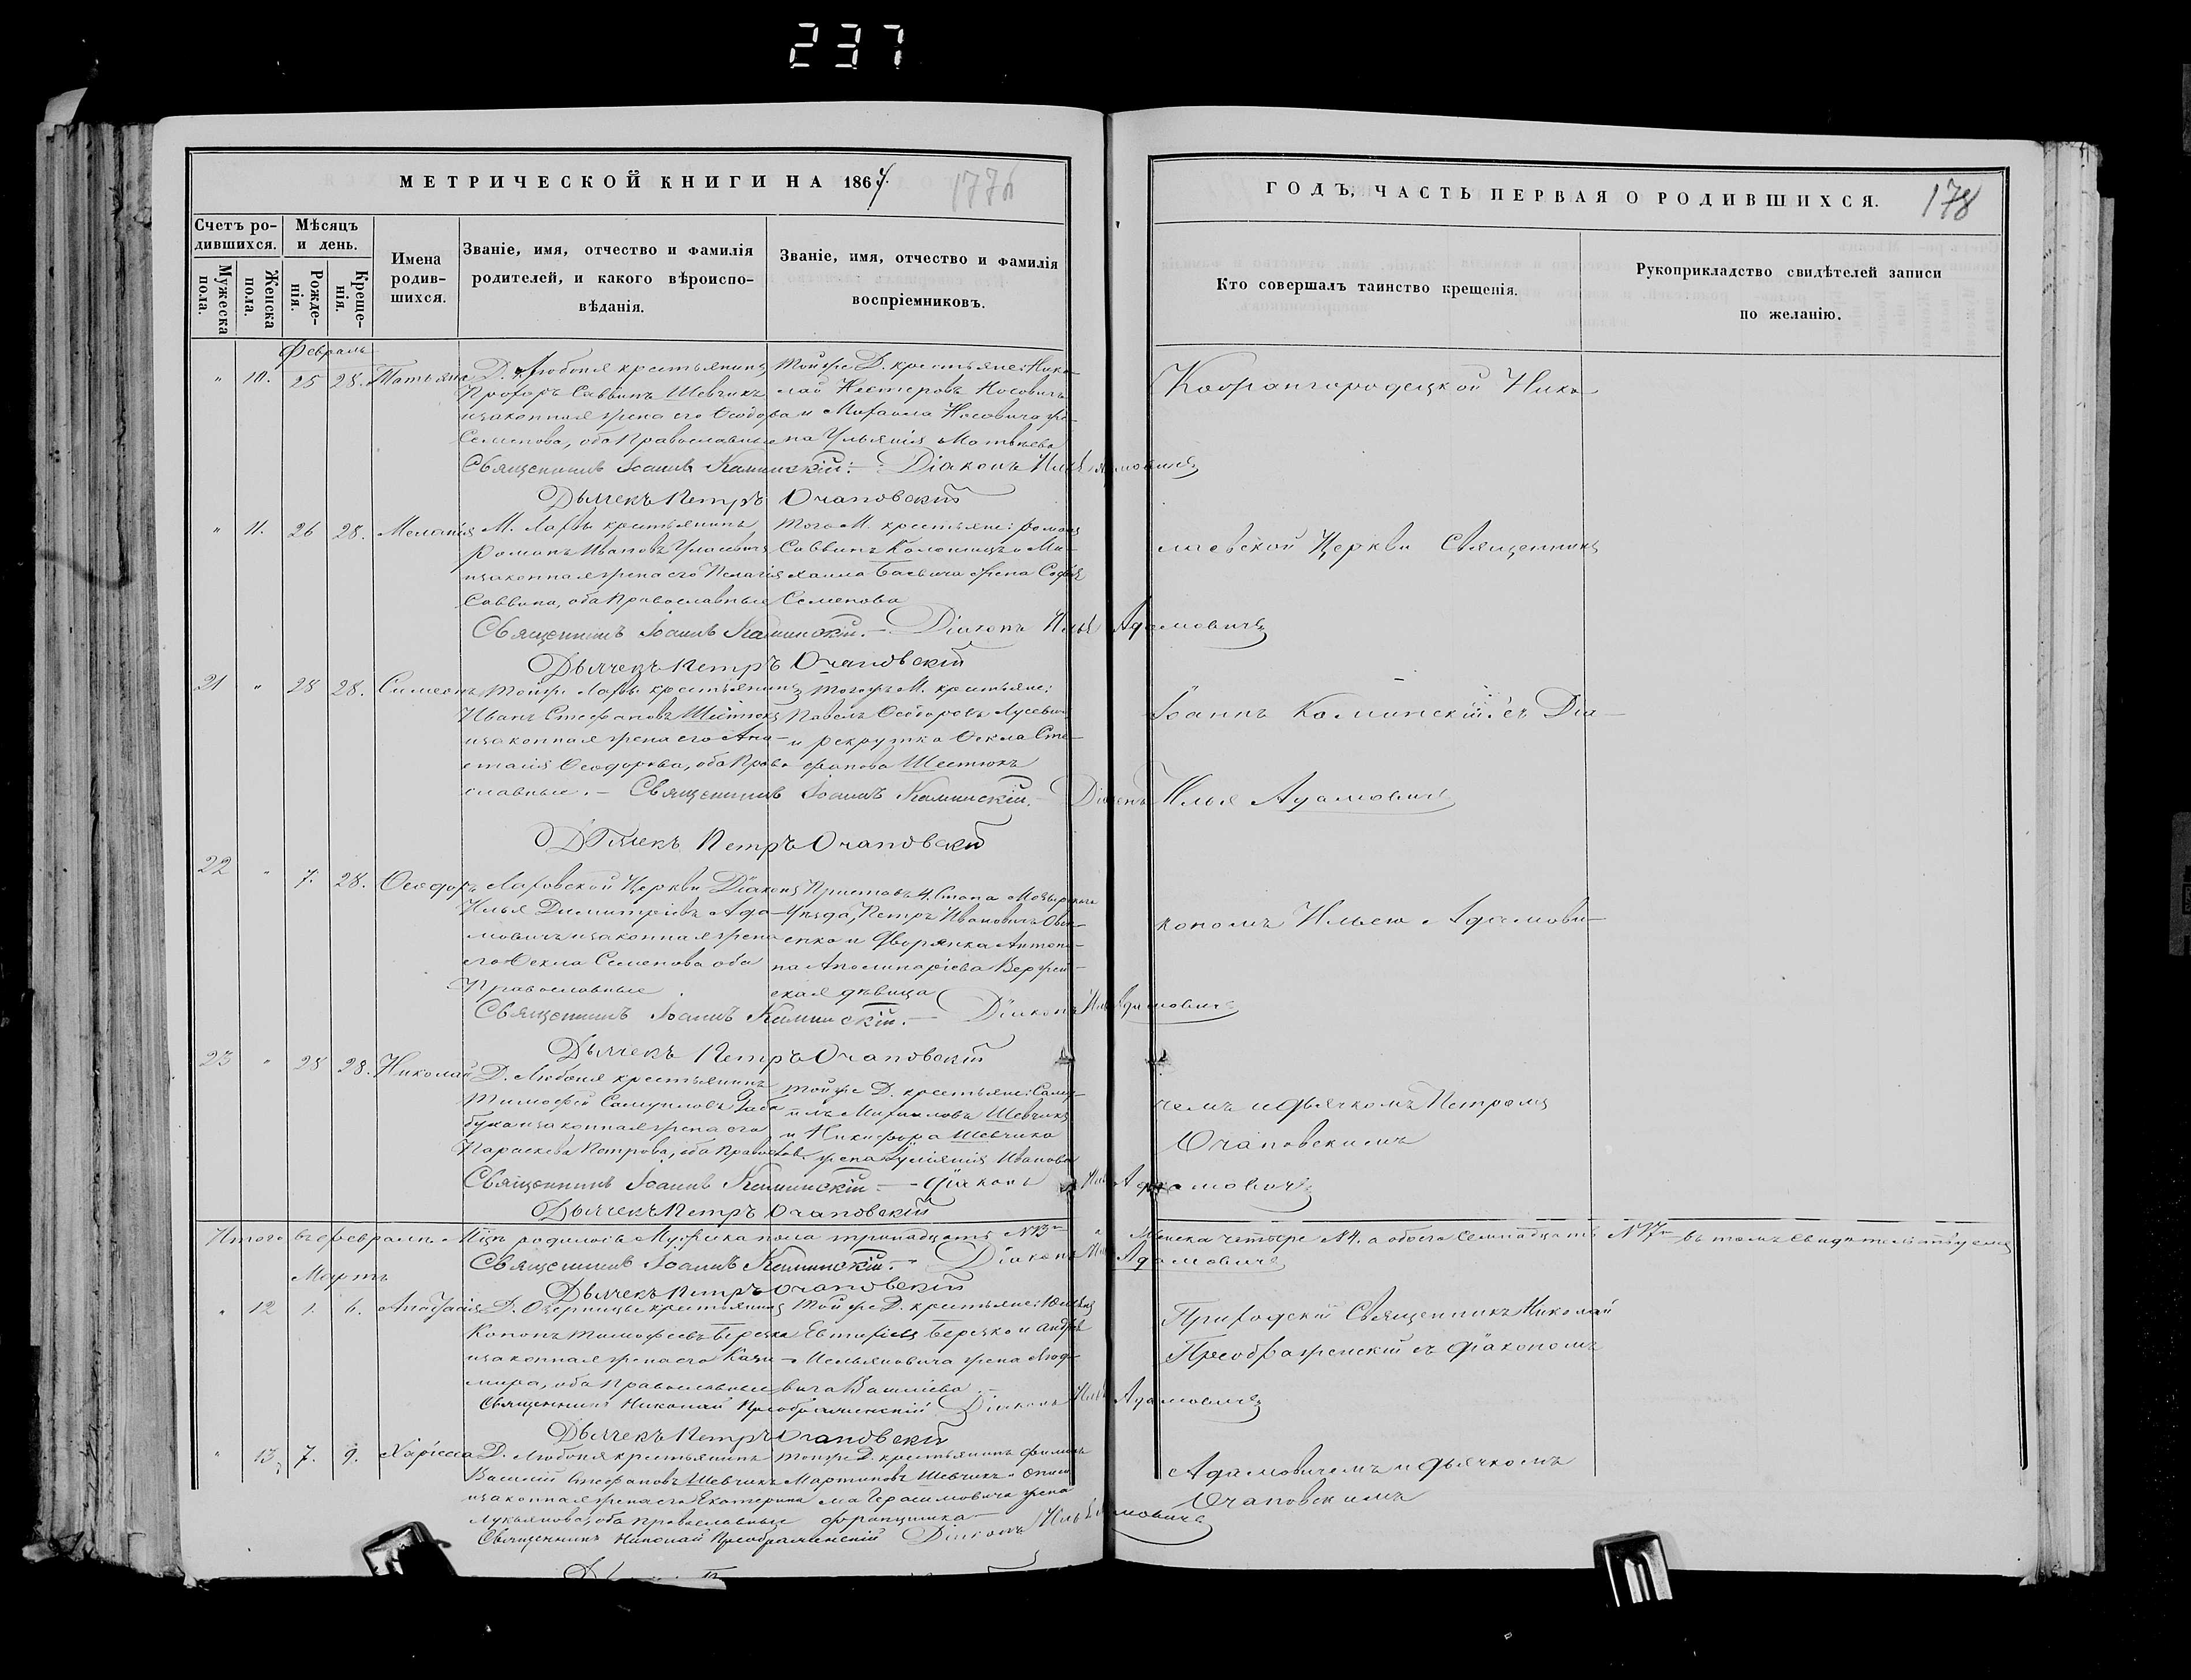 237
МЕТРИЧЕСКОЙ КНИГИ НА 1864.
177б
ГОДЪ, ЧАСТЬ ПЕРВАЯ О РОДИВШИХСЯ.
178
Счетъ ро-
дившихся.
Мужеска
пола.
Женска
пола.
Мѣсяцъ
и день.
Рожде-
нія.
Креще-
нія.
Имена
родив-
шихся.
Званіе, имя, отчество и фамилія
родителей, и какого вѣроиспо-
вѣданія.
Званіе, имя, отчество и фамилія
воспріемниковъ.
Кто совершалъ таинство крещенія.
Рукоприкладство свидѣтелей записи
по желанію.
Февраль
" 10. 25 28. Татьяна
Д. Любоня крестьянинъ
Прохоръ Саввинъ Шевчикъ
и законная жена его Ѳеодора
Семенова, оба Православные
Той же Д. крестьяне: Нико-
лай Нестеровъ Носовичъ
и Михаила Носовича же-
на Ульянія Матвѣева
Кожангородецкой Нико-
Священникъ Іоаннъ Каминскій. Діаконъ Илья Адамовичъ
Дьячекъ Петръ Очаповскій
" 11. 26 28. Меланія
М. Лахвы крестьянинъ
Романъ Ивановъ
и законная жена его Пелагія
Саввина, оба Православные
Того М. крестьяне: Романъ
Саввинъ и Ми-
хаила Баевича жена Софія
Семенова
лаевской Церкви Священникъ
Священникъ Іоаннъ Каминскій. Діаконъ Илья Адамовичъ
Дьячекъ Петръ Очаповскій
21 " 28 28. Симеонъ
Той же Лахвы крестьянинъ
Иванъ Стефановъ Шестюкъ
и законная жена его Ана-
стасія Ѳеодорова, оба Право-
славные.
Того же М. крестьяне:
Павелъ Ѳеодоровъ
и рекрутка Ѳекла Сте-
фанова Шестюкъ
Іоаннъ Каминскій съ Діа-
Священникъ Іоаннъ Каминскій. Діаконъ Илья Адамовичъ
Дьячекъ Петръ Очаповскій
22 " 7. 28. Ѳеодоръ
Лахвской Церкви Діаконъ
Илья Димитріевъ Ада-
мовичъ и законная жена
его Ѳекла Семенова оба
Православные
Приставъ 4. Стана Мозырскаго
Уѣзда, Петръ Ивановичъ
и Дворянка Антони-
на Аполинаріева
ская дѣвица
кономъ Ильею Адамови-
Священникъ Іоаннъ Каминскій. Діаконъ Илья Адамовичъ
Дьячекъ Петръ Очаповскій
23 " 28 28. Николай
Д. Любоня крестьянинъ
Тимофей Самуиловъ
и законная жена его
Параскева Петрова, оба Православ.
Той же Д. крестьяне: Саму-
илъ Михайловъ Шевчикъ
и Никифора Шевчика
жена Иванова
чемъ и дьячкомъ Петромъ
Очаповскимъ
Священникъ Іоаннъ Каминскій. Діаконъ Илья Адамовичъ
Дьячекъ Петръ Очаповскій
Итого въ февралѣ Мцѣ родилось Мужеска пола тринадцать N 13 Женска четыре N 4. а обоего Семнадцать N 17 въ томъ свидѣтельствуемъ
Священникъ Іоаннъ Каминскій. Діаконъ Илья Адамовичъ
Дьячекъ Петръ Очаповскій
Мартъ
" 12 1. 6. Анастасія
Д. крестьянинъ
Кононъ Тимофеевъ Березка
и законная жена его Кази-
мира, оба Православные
Той же Д. крестьяне:
Евтихіевъ Березко и Андрея
жена
Василіева
Приходскій Священникъ Николай
Преображенскій съ Діакономъ
Священникъ Николай Преображенскій Діаконъ Илья Адамовичъ
Дьячекъ Петръ Очаповскій
" 13. 7. 9. Хариеса
Д. Любоня крестьянинъ
Василій Стефановъ Шевчикъ
и законная жена его Екатерина
Лукьянова, оба православные
Той же Д. крестьянинъ Филипъ
Мартиновъ Шевчикъ и
Герасимовича жена
Францишка
Адамовичемъ и дьячкомъ
Очаповскимъ
Священникъ Николай Преображенскій Діаконъ Илья Адамовичъ